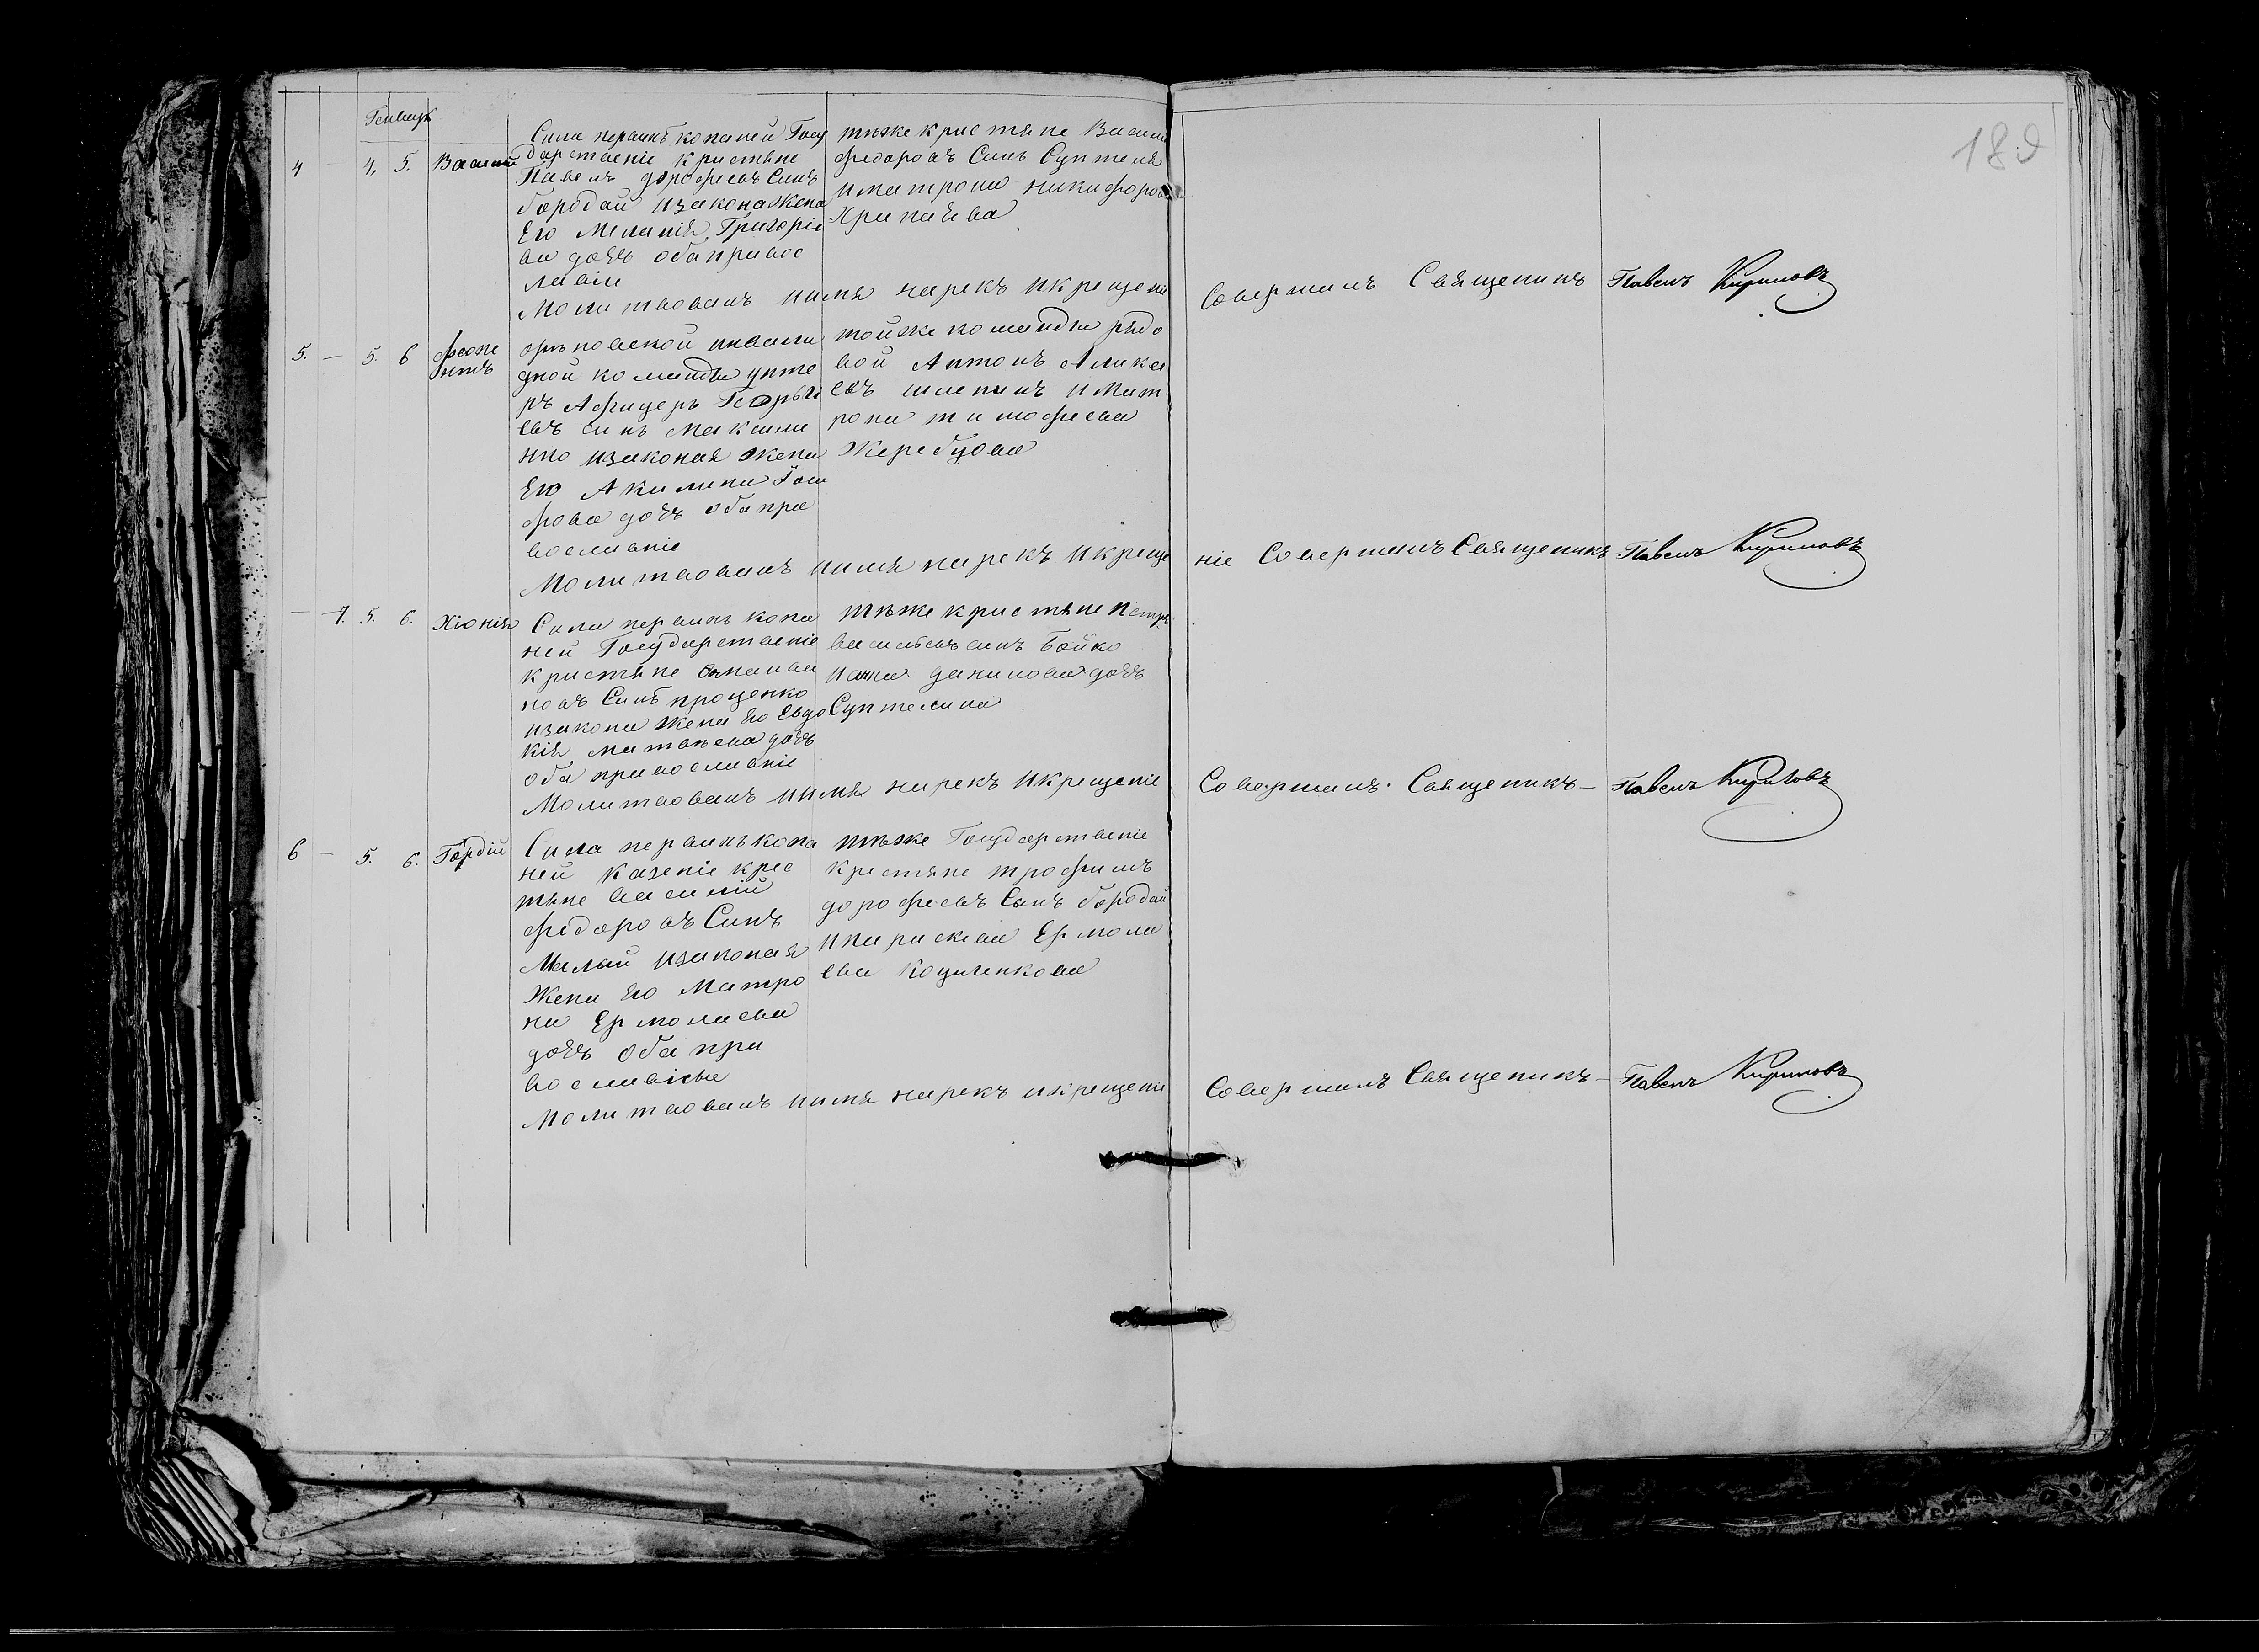 Генваря
189
4 4, 5. Василий
Села первихъ копаней Госу
дарственіе кристяне
Павелъ дорофеевъ Синъ
бородай изаконажена
Его Меланія Григоріе
ва дочь оба правос
лавіи
тѣже кристяне Васили
федоровъ Синъ Суптеля
иматрона никифоров
Хрипачева
Молитвовалъ иимя нарекъ икрещение
Совершилъ Священикъ Павелъ Кириловъ
5. — 5. 6 феопе
нтъ
орѣховской инвали
дной команди унте
ръ Афицеръ Георьги
евъ синъ Максиме
нко изаконая жена
Его Акилина Иоси
фова дочъ оба пра
вославніе
тойже команди рядо
вой Антонъ Аликсе
евъ шлепинъ и Мат
рона тимофеева
Жеребцова
Молитвовалъ иимя нарекъ икреще
ніе Совершилъ Священикъ Павелъ Кириловъ
— 1. 5. 6. Хіонія
Села первихъ копа
ней Государственіе
кристяне
новъ Синъ проценко
изакона жена Его Евдо
кія матвѣева дочъ
оба православніе
тѣже кристяне петръ
васильевъ синъ Бойко
ианна данилова дочъ
Суптелина
Молитвовалъ иимя нарекъ икрещеніе
Совершилъ Священикъ — Павелъ Кириловъ
6 — 5. 6. Гордій
Села первихъ копа
ней казеніе крес
тяне василій
федоровъ Синъ
Малый изаконая
Жена Его Матро
на Ермолаева
дочъ оба пра
вославніе
тѣже Государственіе
Крестяне трофимъ
дорофеевъ Сынъ бородай
ипараскева Ермола
ева Коциченкова
Молитвовалъ иимя нарекъ икрещение
Совершилъ Священикъ — Павелъ Кириловъ